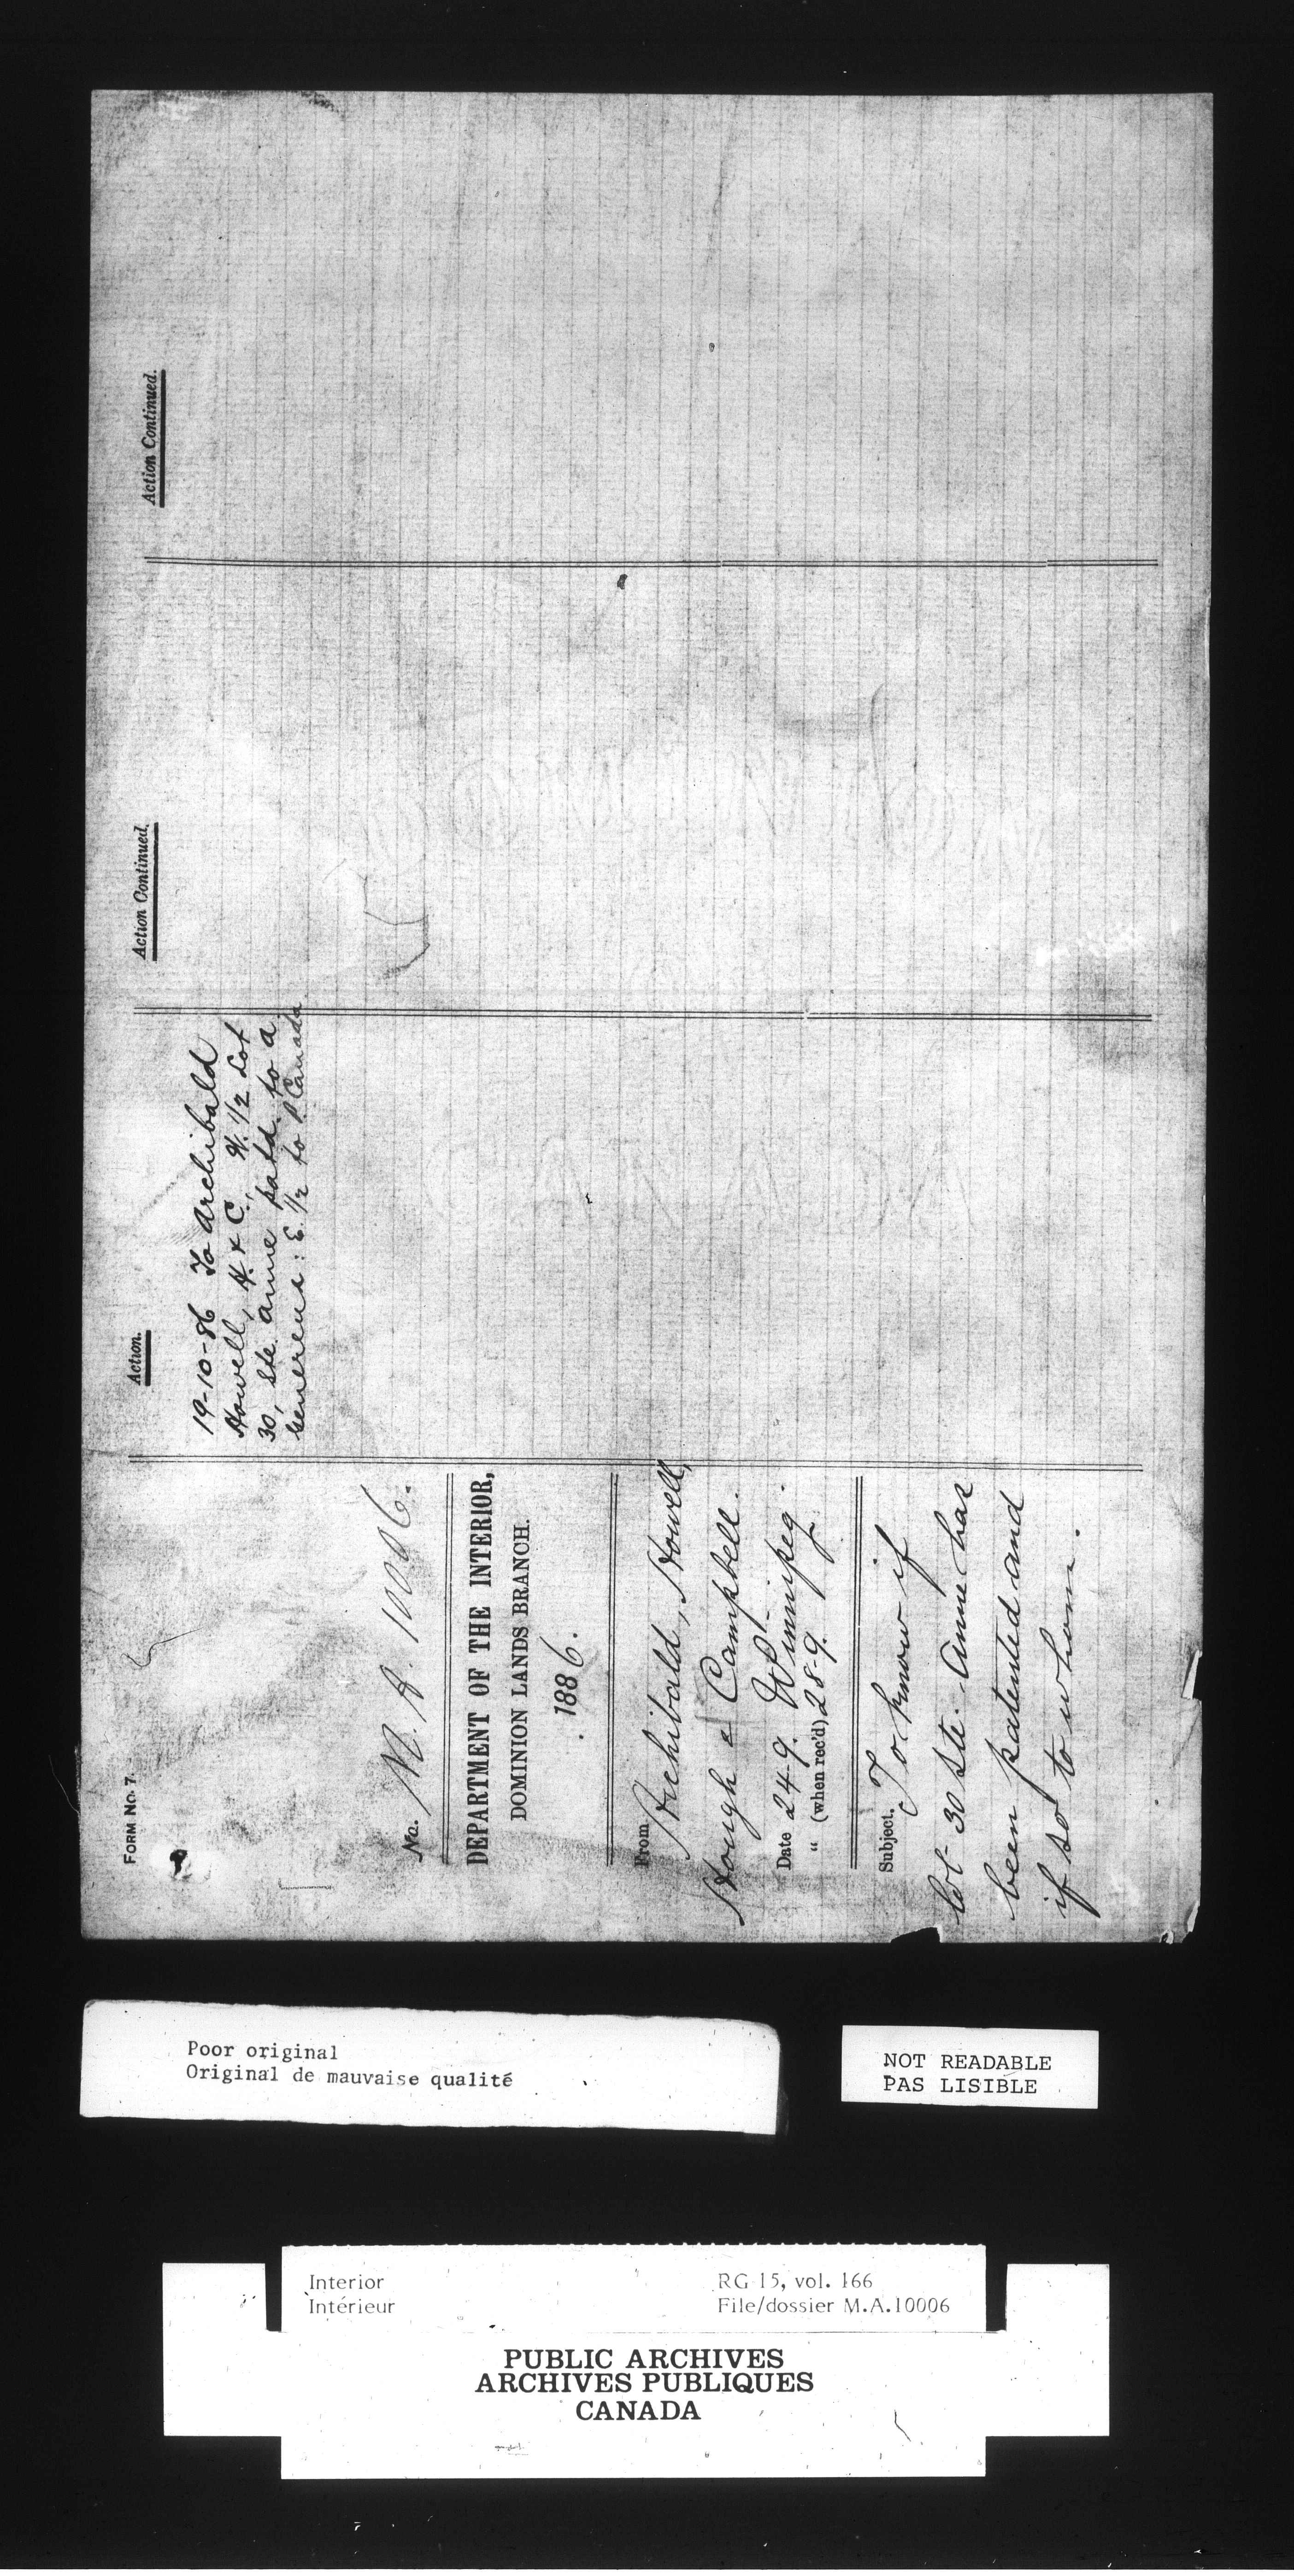 FORM No. 7
No. M. A. 10006.
DEPARTMENT OF THE INTERIOR,
DOMINION LANDS BRANCH.
1886.
From Archibald, Howell,
Hough & Campbell.
Date 24-9. Winnipeg.
" (when rec'd) 28-9.
Subject. To know if
lot 30 Ste. Anne has
been patented and
if so to whom.
Action.
19-10-86 To Archibald
Howell, H. & C. W. 1/2 Lot
30, Ste. Anne patd. to a
: E. 1/2 to P. Canada
Action Continued.
Action Continued.
Poor original
Original de mauvaise qualité
NOT READABLE
PAS LISIBLE
Interior
Intérieur
RG 15, vol. 166
File/dossier M.A.10006
PUBLIC ARCHIVES
ARCHIVES PUBLIQUES
CANADA